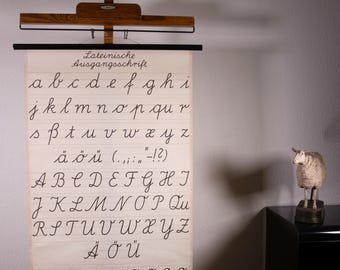 Lateinische
Ausgangsschrift
a b c d e f g h i
j k l m n o p qu r
s ß t u v w x y z
ä ö ü (.,;:„“-!?)
A B C D E F G H I
J K L M N O P Qu
R S T U V W X Y Z
Ä Ö Ü